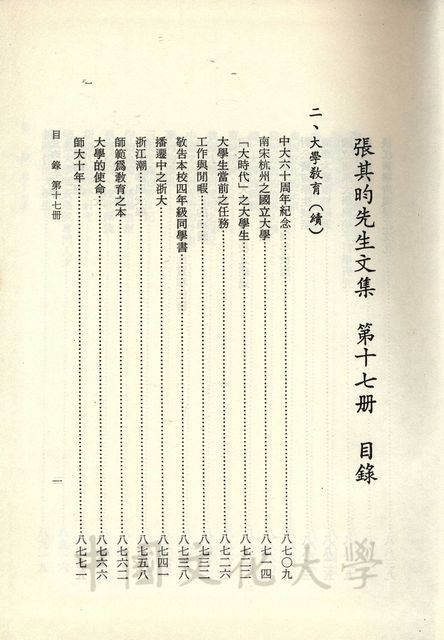 張其昀先生文集　第十七册　目錄
二、大學教育（續）
中大六十周年紀念……八七〇九
南宋杭州之國立大學……八七一四
「大時代」之大學生……八七二二
大學生當前之任務……八七二六
工作與閒暇……八七三二
敬告本校四年級同學書……八七三八
播遷中之浙大……八七四一
浙江潮……八七五八
師範爲教育之本……八七六二
大學的使命……八七六六
師大十年……八七七一
目　錄　第十七册
一
中國文化大學